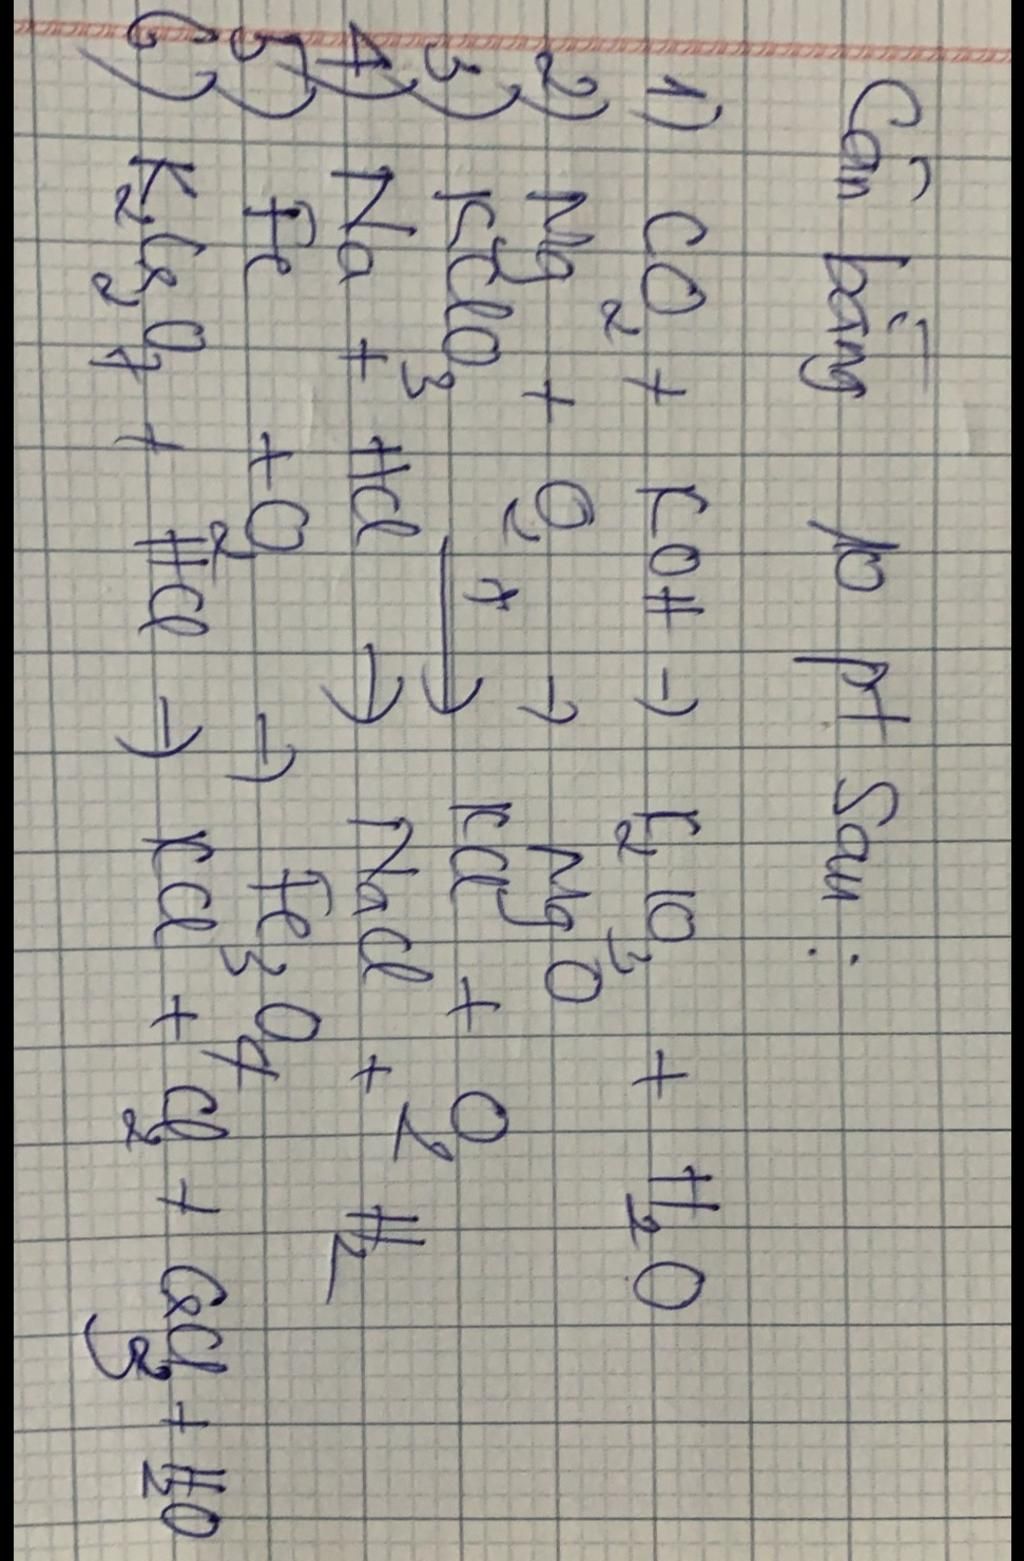 Cân bằng 10 pt sau:
1) CO2 + KOH → K2CO3 + H2O
2) Mg + O2 → MgO
3) KClO3 t→ KCl + O2
4) Na + HCl → NaCl + H2
5) Fe + O2 → Fe3O4
6) K2Cr2O7 + HCl → KCl + Cl2 + CrCl3 + H2O